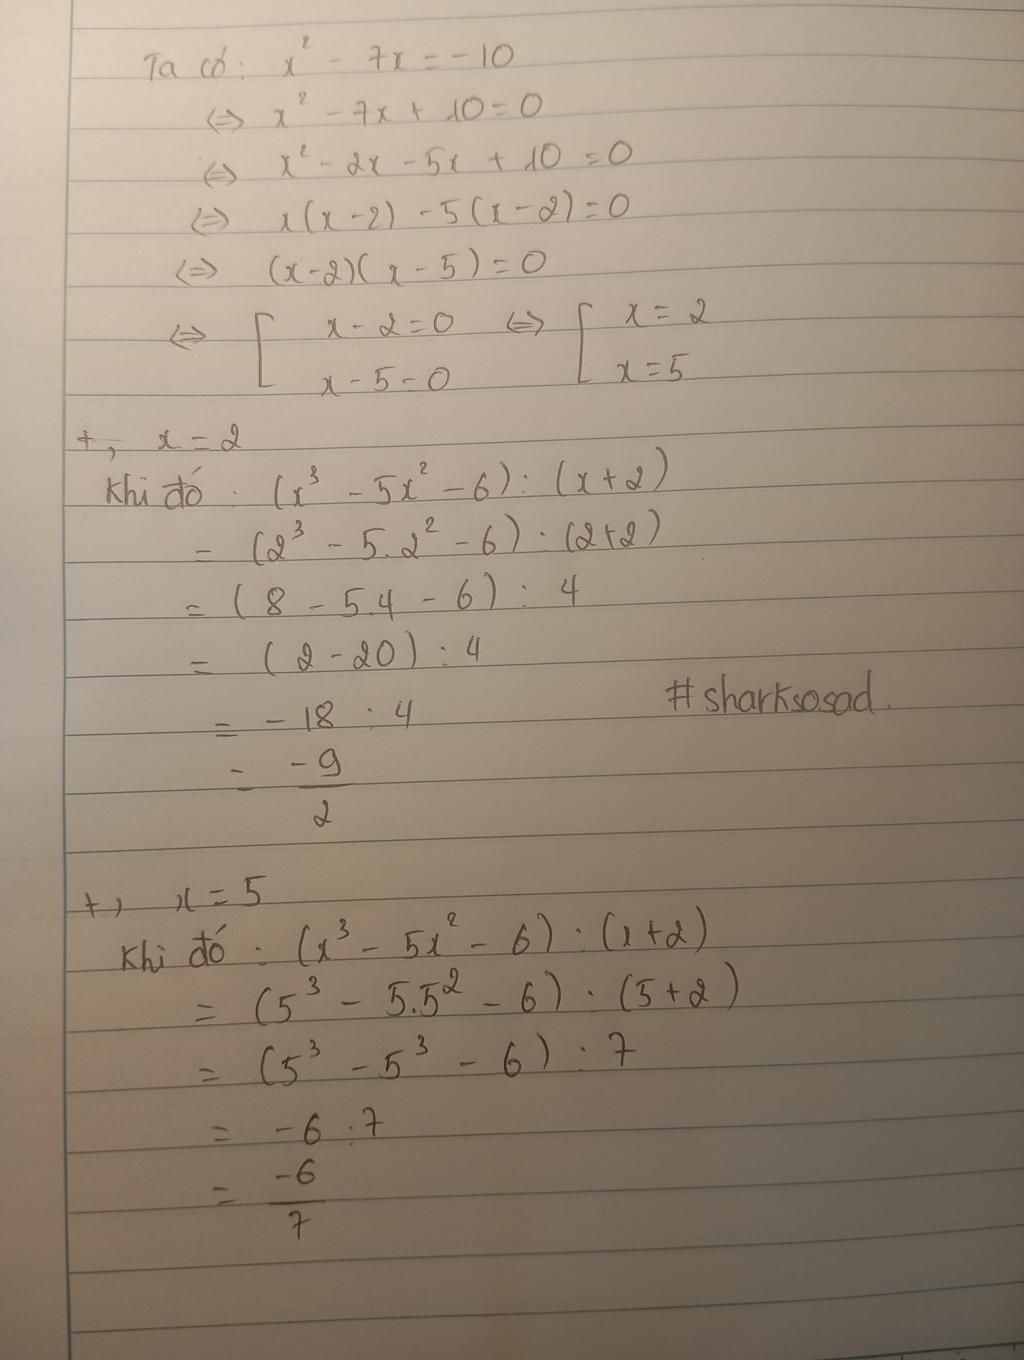 Ta có: x² - 7x = -10
⇔ x² - 7x + 10 = 0
⇔ x² - 2x - 5x + 10 = 0
⇔ x(x-2) - 5(x-2) = 0
⇔ (x-2)(x-5) = 0
⇔ [ x-2=0 ⇔ [ x = 2
x-5=0 x=5
+, x = 2
Khi đó: (x³ - 5x² - 6) : (x+2)
= (2³ - 5.2² - 6) : (2+2)
= (8 - 5.4 - 6) : 4
= (2-20) : 4
= -18 : 4
#sharksosad.
= -9
2
+, x = 5
Khi đó: (x³ - 5x² - 6) : (x+2)
= (5³ - 5.5² - 6) : (5+2)
= (5³ - 5³ - 6) : 7
= -6 : 7
= -6
7